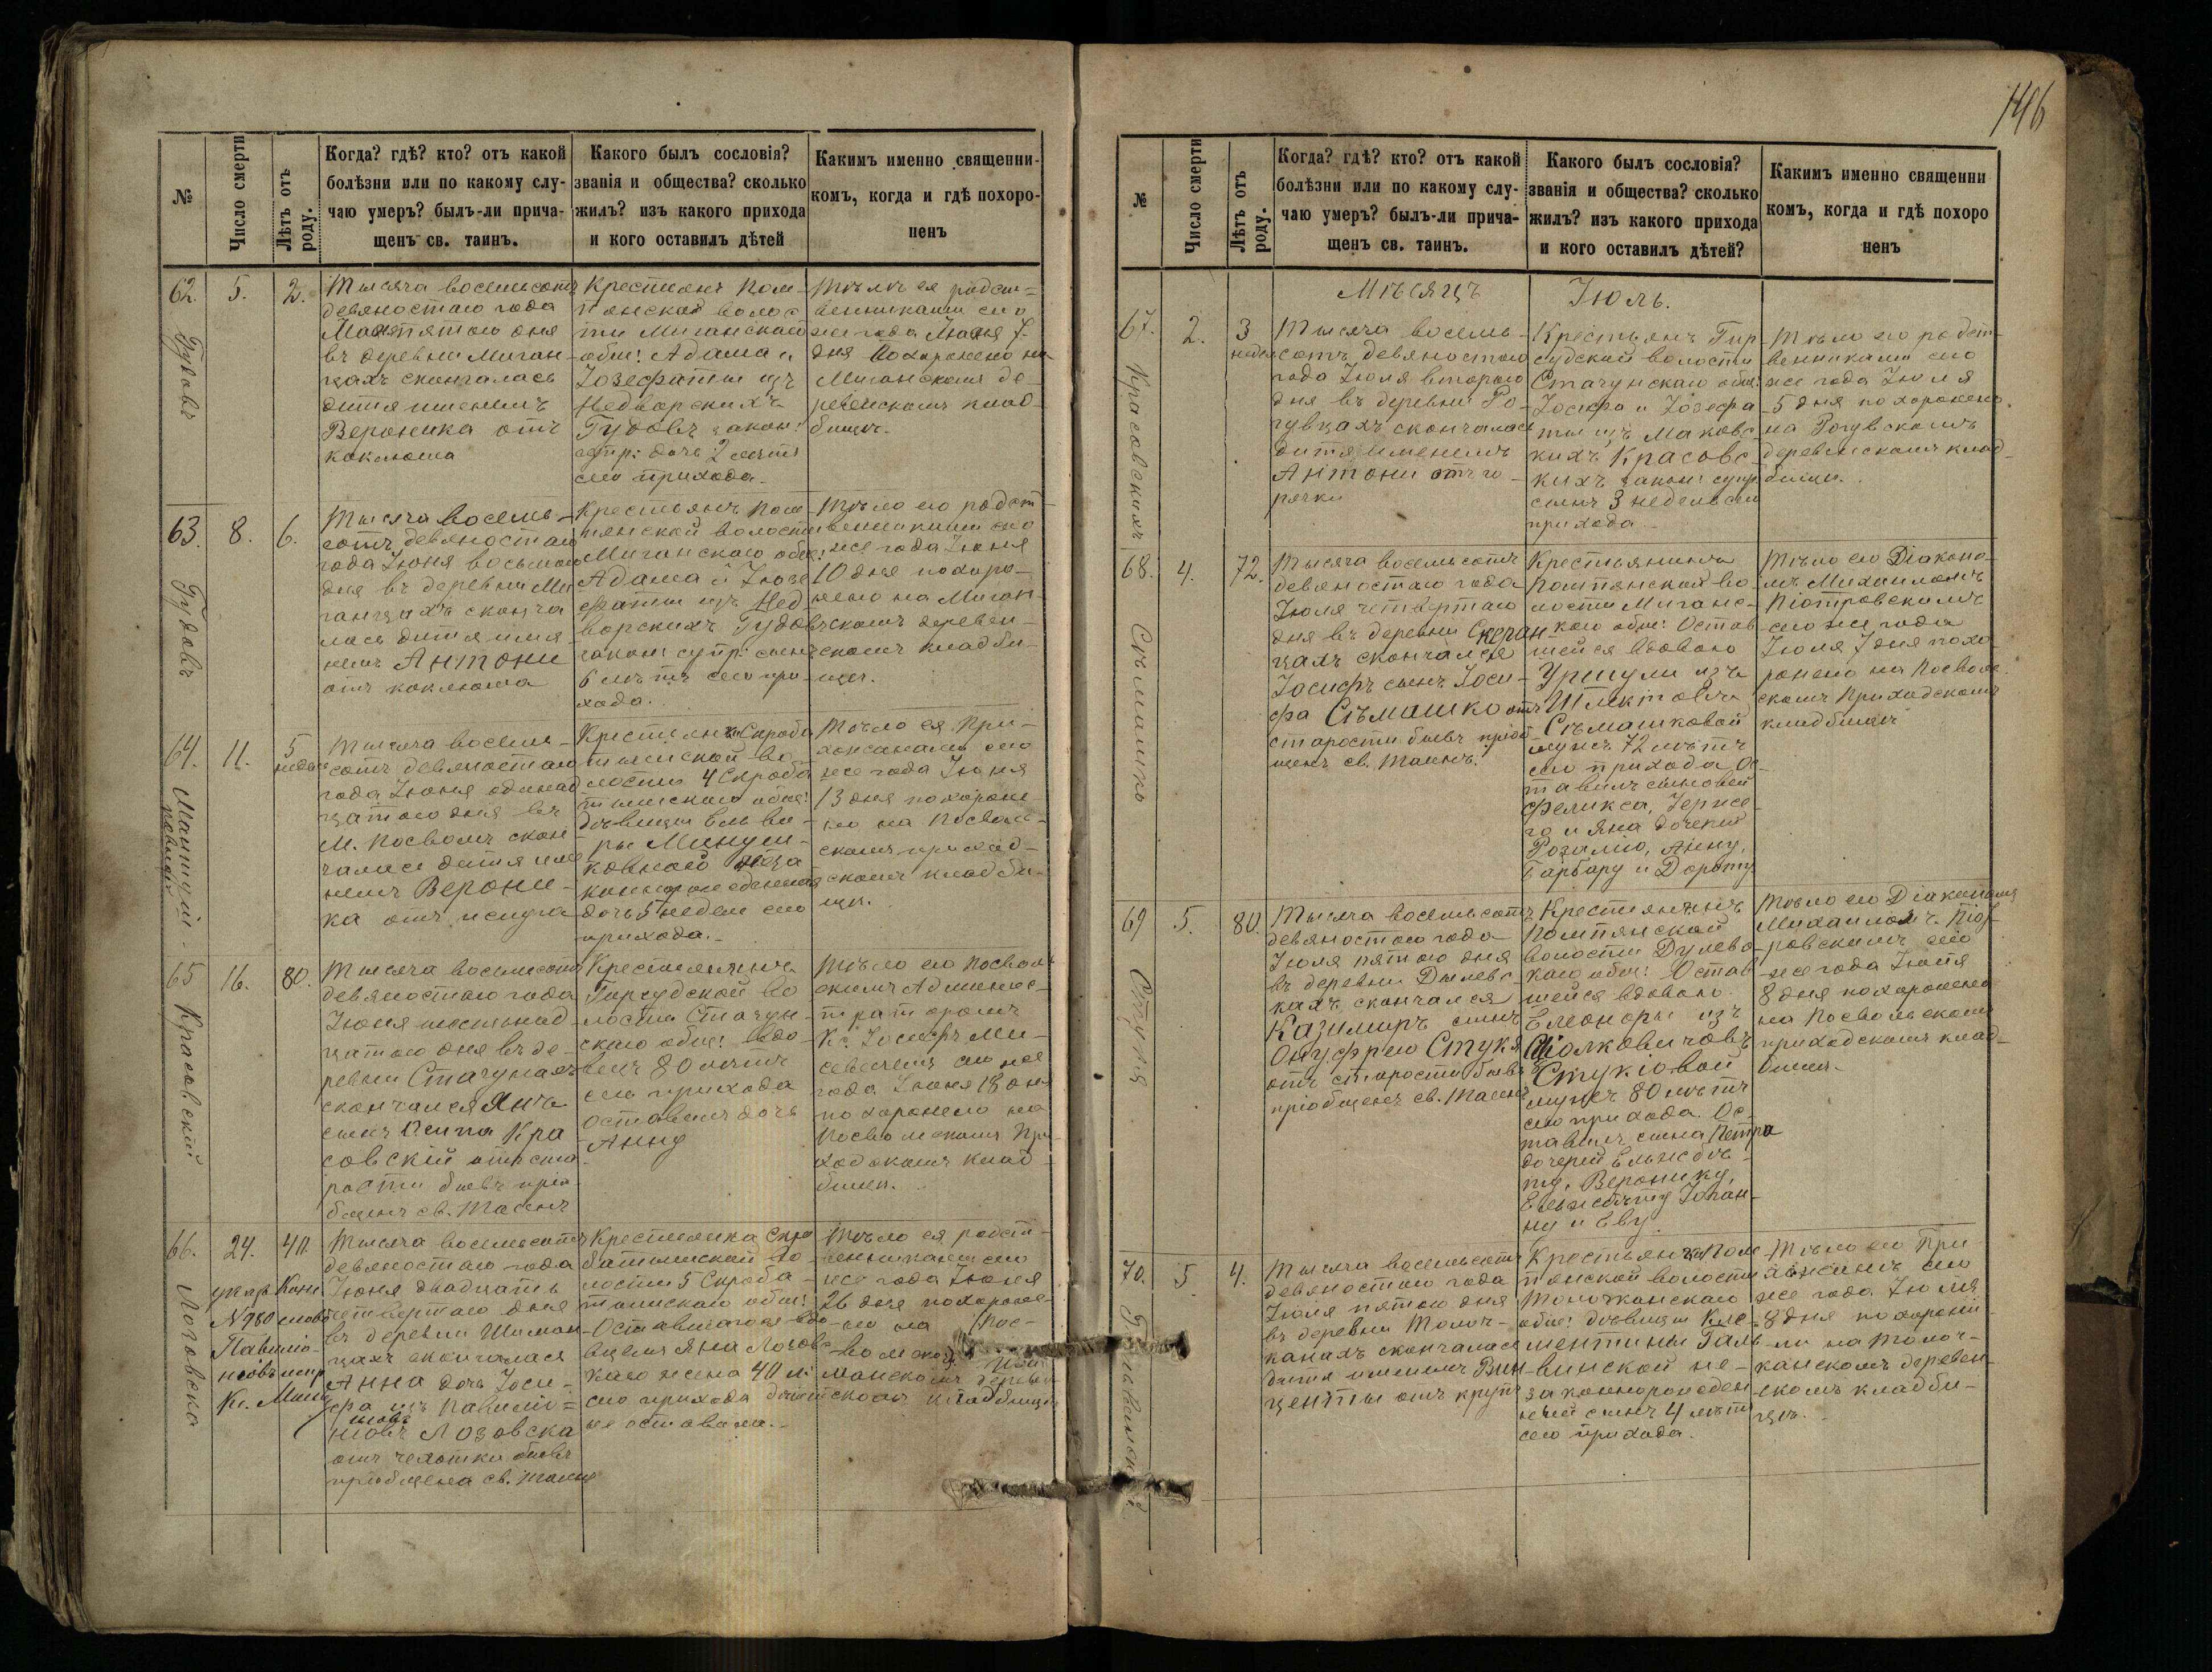 146
№
Число смерти
Лѣтъ отъ
роду.
Когда? гдѣ? кто? отъ какой
болѣзни или по какому слу-
чаю умеръ? былъ-ли прича-
щенъ св. таинъ.
Какого былъ сословія?
званія и общества? сколько
жилъ? изъ какого прихода
и кого оставилъ дѣтей
Какимъ именно священни-
комъ, когда и гдѣ похоро-
ненъ
62.
Гудовъ
5.
2.
Тысяча восемьсотъ
девяностаго года
пятого дня
въ деревни Миган-
цахъ скончалась
дитя именемъ
Вероника отъ
коклюша
Крестьянъ Пом-
пянской волос
ти Миганскаго
общ: Адама и
Іозефаты изъ
Недворскихъ
Гудовъ закон:
супр: дочь 2 лѣтъ
сего прихода.
Тѣло ея родст-
венниками сего
же года Іюня 7
дня похоронено на
Миганскомъ де-
ревенскомъ клад-
бищѣ.
63.
Гудовъ
8.
6.
Тысяча восемь-
сотъ девяностаго
года Іюня восьмого
дня въ деревни Ми
ганцахъ сконча
лась дитя име
немъ Антони
отъ коклюша
Крестьянъ Пом
пянской волости
Миганскаго общ:
Адама и Іозе
фаты изъ Нед-
ворскихъ Гудовъ
закон: супр: сынъ
6 лѣтъ сего при-
хода.
Тѣло его родст
венниками сего
же года Іюня
10 дня похоро-
нено на Миган-
скомъ деревен-
скомъ кладби-
щѣ.
64.
11.
5
недѣль
Тысяча восемь-
сотъ девяностаго
года Іюня одинад
цатого дня въ
М. Посволѣ скон-
чалась дитя име
немъ Верони-
ка отъ испуга
волости 4 Скроба
тишскаго общ:
дѣвицы Ельви-
ры
дочь 5 недѣли сего
прихода.
Тѣло ея При-
хожанами сего
же года Іюня
13 дня похороне-
но на Посволь-
скомъ приход-
скомъ кладби-
щѣ.
65
Красовскій
16.
80.
Тысяча восемьсотъ
девяностаго года
Іюня шестнад
цатого дня въ де-
ревни Стачунахъ
скончался Янъ
сынъ Осипа Кра
совскій отъ ста
рости бывъ прио
бщенъ св. Таинъ
Крестьянинъ
Гирсудской во
лости Стачун-
скаго общ: вдо-
вецъ 80 лѣтъ
сего прихода
оставилъ дочь
Анну
Тѣло его Посволь
скимъ Админис-
траторомъ
Кс. Іосифъ Ми-
сего же
года Іюня 18 дня
похоронено на
Посвольскомъ При-
ходскомъ клад-
бищѣ.
66.
Лозовска
24.
40.
Тысяча восемьсотъ
девяностаго года
Іюня двадцать
четвертаго дня
въ деревни Шиман
цахъ скончалася
Анна дочь Іоси-
фа изъ
Лозовска
отъ чехотки бывъ
приобщена св. Таинъ
Крестьянка Скро
батишской во-
лости 5 Скроба-
тишскаго общ:
Яна Лозовс
каго жена 40 л.
сего прихода дѣтей
не оставила.
Тѣло ея родст-
венниками сего
же года Іюня
26 дня похороне-
но на
кладбищѣ
№
Число смерти
Лѣтъ отъ
роду.
Когда? гдѣ? кто? отъ какой
болѣзни или по какому слу-
чаю умеръ? былъ-ли прича-
щенъ св. таинъ.
Какого былъ сословія?
званія и общества? сколько
жилъ? изъ какого прихода
и кого оставилъ дѣтей?
Какимъ именно священни
комъ, когда и гдѣ похоро
ненъ
Мѣсяцъ Іюль.
67.
Красовскихъ
2.
3
недѣл
Тысяча восемь-
сотъ девяностаго
года Іюля второго
дня въ деревни Ро-
гувцахъ скончалась
дитя именемъ
Антони отъ го-
рячки
Крестьянъ Гир
судской волости
Стачунскаго общ:
Іосифа и Іозефа
ты изъ Маковс-
кихъ Красовс-
кихъ закон: супр:
сынъ 3 недели сего
прихода.
Тѣло его родст-
венниками сего
же года Іюля
5 дня похоронено
на Рогувскомъ
деревенскомъ клад-
бищи.
68.
Сѣмашко
4.
72.
Тысяча восемьсотъ
девяностаго года
Іюля четвертаго
дня въ деревни
цахъ скончался
Іосифъ сынъ Іоси-
фа Сѣмашко отъ
старости бывъ приоб-
щенъ св. Таинъ.
Крестьянинъ
Помпянской во
лости Миганс-
каго общ: Остав
шейся вдовою
Уршули изъ
Шлектовъ
Сѣмашковой
мужъ 72 лѣтъ
сего прихода Ос-
тавилъ сыновей
Феликса, Іержe-
го и Яна дочерей
Розалію, Анну,
Барбару и Дороту
Тѣло его Діакono-
мъ Михаиломъ
Піотровскимъ
сего же года
Іюля 7 дня похо-
ронено на Посволь
скомъ Приходскомъ
кладбищѣ
69
Стукя
5.
80.
Тысяча восемьсотъ
девяностаго года
Іюля пятого дня
въ деревни Дылевс-
кахъ скончался
Казимиръ сынъ
Онуфрего Стукя
отъ старости бывъ
пріобщенъ св. Таинъ
Крестьянинъ
Помпянской
волости Дулево-
каго общ: Остав
шейся вдовою
Елеоноры изъ
Стукіовой
мужъ 80 лѣтъ
сего прихода. Ос-
тавилъ сына Петра
дочерей Ельжбе-
ту, Веронику,
Іоган-
ну и Еву.
Тѣло его Діакономъ
Михаиломъ Піот-
ровскимъ сего
же года Іюля
8 дня похоронено
на Посвольскомъ
приходскомъ клад-
бищѣ.
70.
5
4.
Тысяча восемьсотъ
девяностаго года
Іюля пятого дня
въ деревни Толоч-
канахъ скончалася
дитя именемъ Вин
центы отъ крупъ
Крестьянъ Пом
пянской волости
Толочканскаго
общ: дѣвицы Кле-
ментины Галь
винской не-
законнорожден-
ный сынъ 4 лѣтъ
сего прихода.
Тѣло его При
хожанъ сего
же года Іюля
8 дня похорони-
ли на Толоч-
канскомъ деревен-
скомъ кладби-
щѣ.